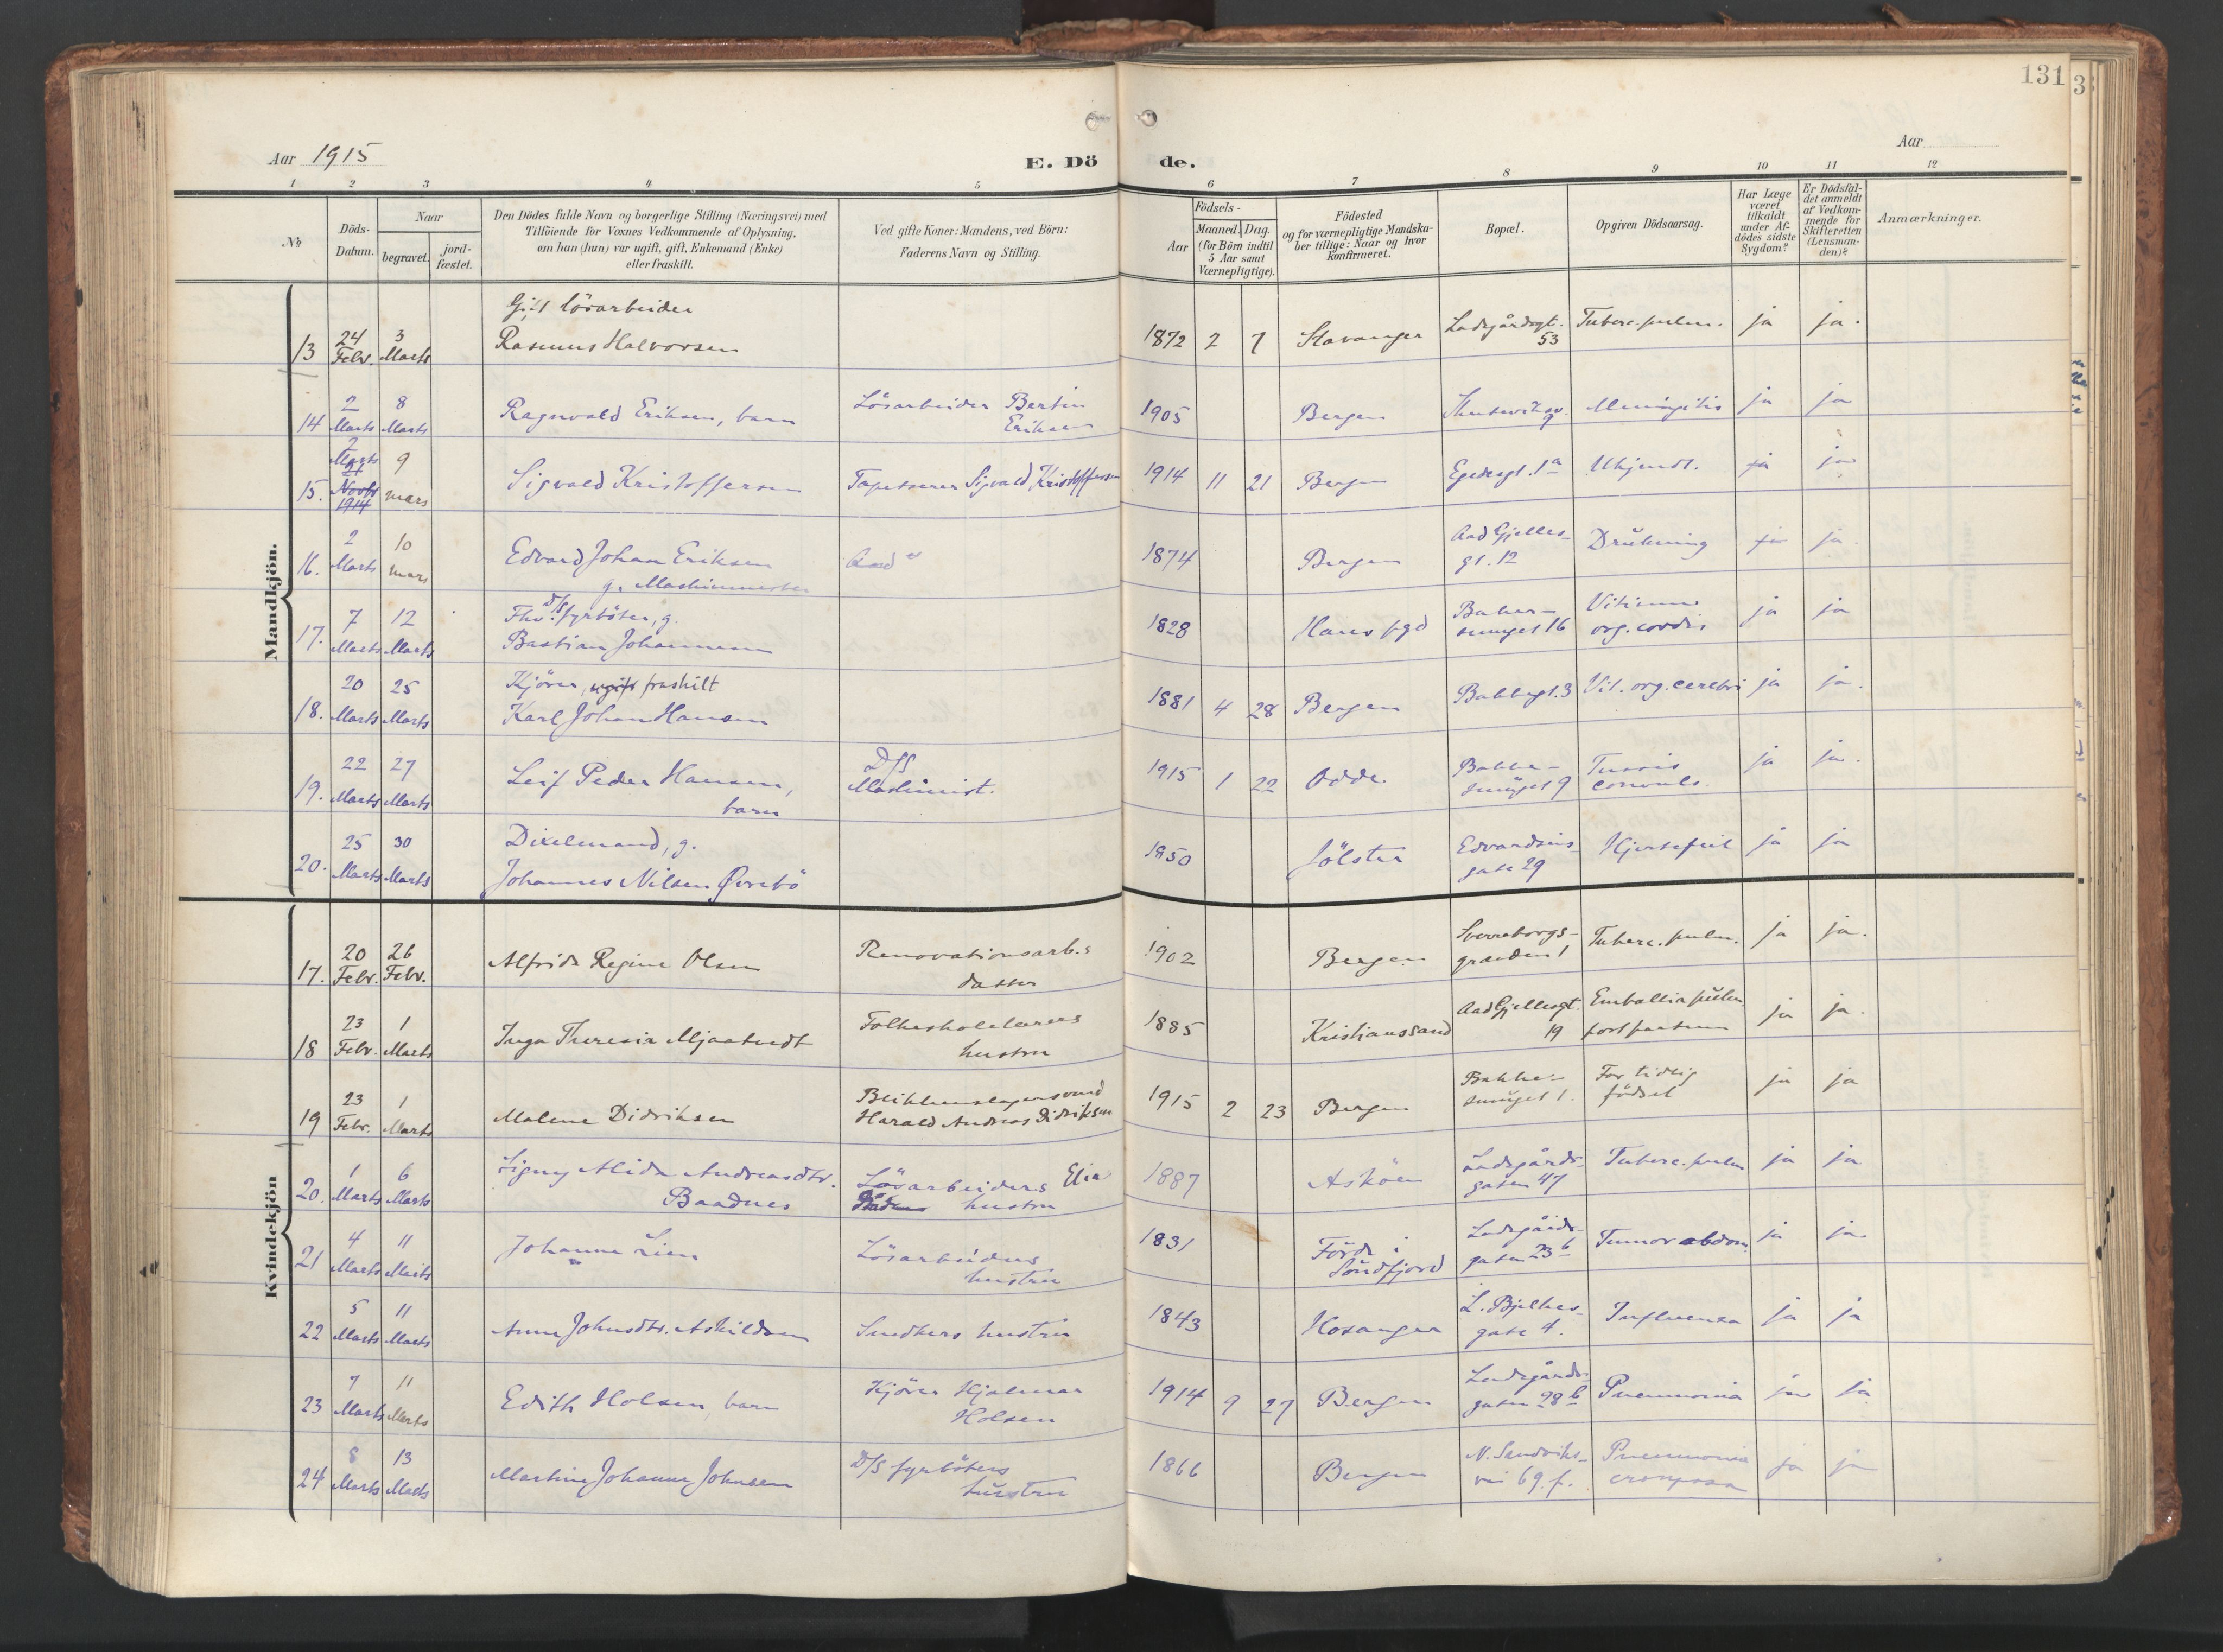 131
3
Aar 1915
E. Dö de.
Aar
1 2 3 4 5 6 7 8 9 10 11 12
№
Döds-Datum.
Naar
begravet.
jord-fæstet.
Den Dödes fulde Navn og borgerlige Stilling (Næringsvei) med
Tilföiende for Voxnes Vedkommende af Oplysning,
om han (hun) var ugift, gift, Enkemand (Enke)
eller fraskilt.
Ved gifte Koner: Mandens, ved Börn:
Faderens Navn og Stilling.
Födsels-
Aar
Maaned. Dag.
(for Börn indtil
5 Aar samt
Værnepligtige).
Födested
og for værnepligtige Mandska-
ber tillige: Naar og hvor
konfirmeret.
Bopæl.
Opgiven Dödsaarsag.
Har Læge
været
tilkaldt
under Af-
dödes sidste
Sygdom?
Er Dödsfal-
det anmeldt
af Vedkom-
mende for
Skifteretten
(Lensman-
den)?
Anmærkninger.
Mandkjön.
13 24 Febr. 3 Marts Gift lösarbeider
Rasmus Halvorsen 1872 2 7 Stavanger Ladegårdsgt. 53 Tuberc. pulm. ja ja.
14 2 Marts 8 Marts Ragnvald Eriksen, barn Lösarbeider Bertin Eriksen 1905 Bergen 9 Meningitis ja ja
15. 2 Marts 21 Novbr 1914 9 mars Sigvald Kristoffersen Tapetserer Sigvald Kristoffersen 1914 11 21 Bergen Egedesgt. 1a Ukjendt. ja ja
16. 2 Marts 10 mars Edvard Johan Eriksen
g. Maskinmester 1874 Bergen Aad Gjelles-
gt. 12 Drukning ja ja.
17. 7 Marts 12 Marts Fhv. D/S fyrböter, g.
Bastian Johannesen 1828 Haus pgd Bakke-
smuget 16 Vitium
org. cordis ja ja
18. 20 Marts 25 Marts Kjörer, ugift fraskilt
Karl Johan Hansen 1881 4 28 Bergen Bakkegt. 3 Vit. org. cerebri ja ja.
19. 22 Marts 27 Marts Leif Peder Hansen,
barn D/S
Maskinist. 1915 1 22 Odde Bakke-
smuget 9 Tussis
convuls. ja ja.
20. 25 Marts 30 Marts Dixelmand, g.
Johannes Nilsen Øvrebö 1850 Jölster Edvardsens-
gate 29 Hjertefeil ja ja
Kvindekjön
17. 20 Febr. 26 Febr. Alfrida Regine Olsen Renovationsarb.s
datter 1902 Bergen Sverreborgs-
grænden 1 Tuberc. pulm. ja ja.
18 23 Febr. 1 Marts Inga Theresia Mjaatvedt Folkeskolelærers
hustru 1885 Kristianssand Aad Gjellesgt.
19 Embollia pulm
post partum ja ja.
19 23 Febr. 1 Marts Malene Didriksen Blikkenslagersvend
Harald Andreas Didriksen 1915 2 23 Bergen Bakke-
smuget 1. For tidlig
födsel ja ja
20. 1 Marts 6 Marts Signy Alida Andreasdtr.
Baadnes Lösarbeiders Elia
hustru 1887 Asköen Ladegårds-
gaten 47 Tuberc. pulm ja ja
21 4 Marts 11 Marts Johanne Lien Lösarbeiders
hustru 1831 Förde i
Söndfjord Ladegårds-
gaten 23b Tumor abdom. ja ja
22 5 Marts 11 Marts Anna Johnsdtr. Askildsen Snedkers hustru 1843 Hosanger L. Bjelkes-
gate 4. Influensa ja ja
23 7 Marts 11 Marts Edith Holsen, barn Kjörer Hjalmar
Holsen 1914 9 27 Bergen Ladegårds-
gaten 28b Pneumonia ja ja
24 8 Marts 13 Marts Martine Johanne Johnsen D/S fyrböters
hustru 1866 Bergen N. Sandviks-
vei 69 f. Pneumonia
crouposa ja ja